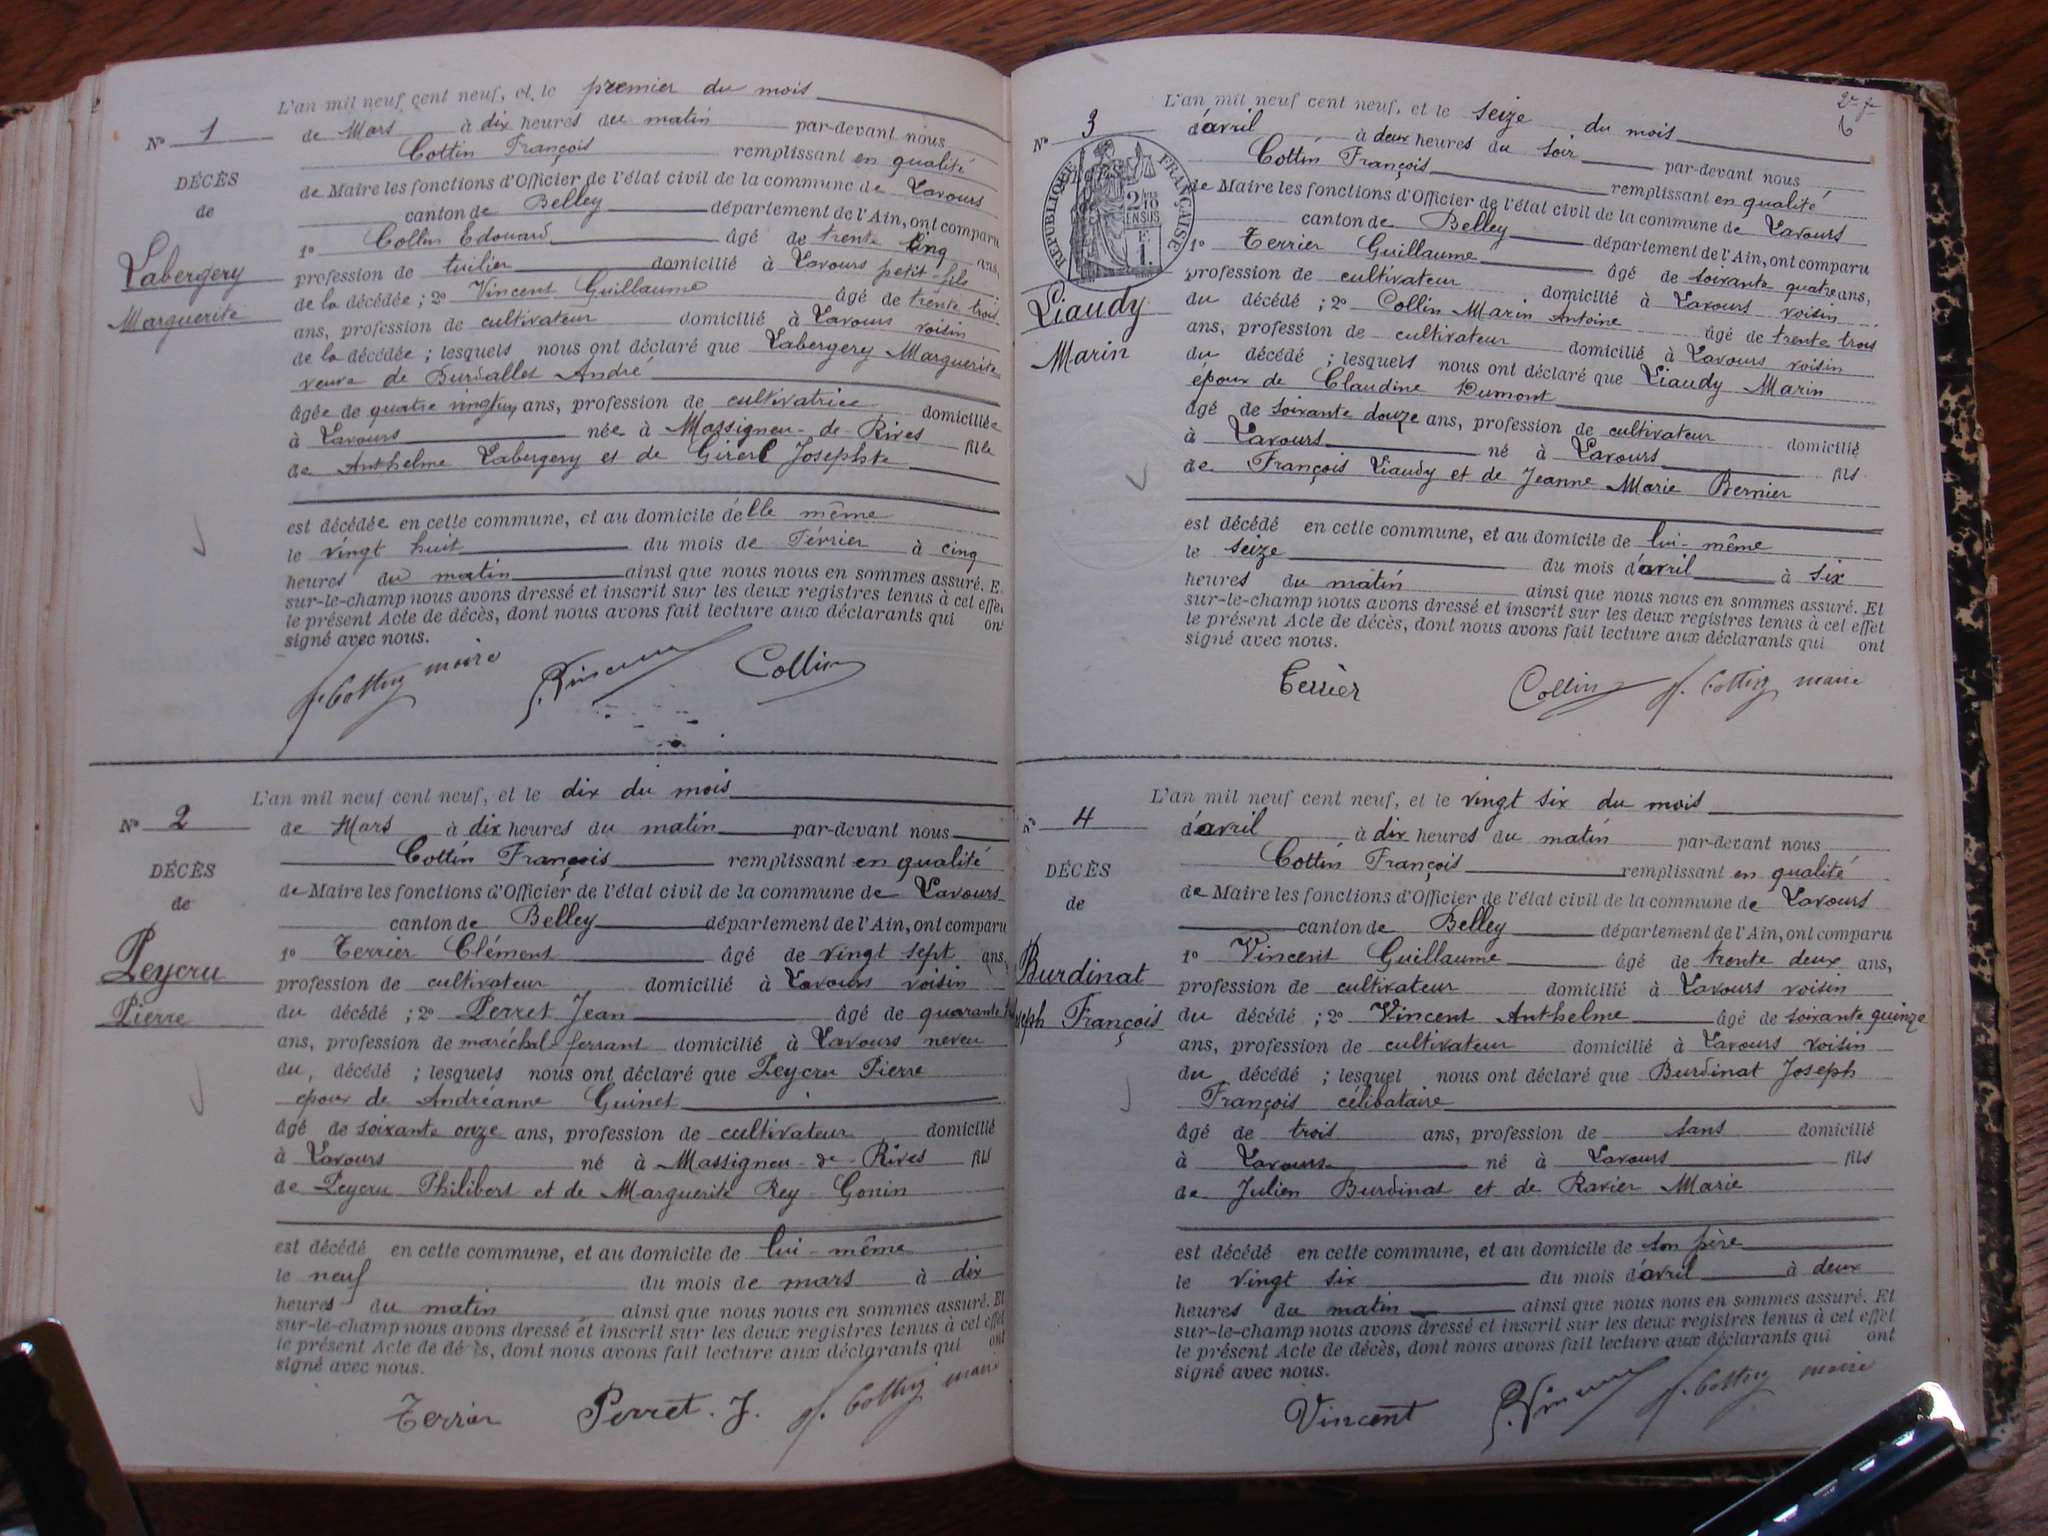 L'an mil neuf cent neuf, et le premier du mois
Nº 1 de Mars à dix heures du matin par-devant nous
Cottin François remplissant en qualité
DÉCÈS de Maire les fonctions d'Officier de l'état civil de la commune de Lavours
de canton de Belley département de l'Ain, ont comparu
1º Collin Edouard âgé de trente cinq ans,
Labergery profession de tuilier domicilié à Lavours petit-fils
Marguerite de la décédée ; 2º Vincent Guillaume âgé de trente trois
ans, profession de cultivateur domicilié à Lavours voisin
de la décédée ; lesquels nous ont déclaré que Labergery Marguerite
veuve de Burdallet André
âgée de quatre vingt ans, profession de cultivatrice domiciliée
à Lavours née à Massigneu-de-Rives fille
de Anthelme Labergery et de Girerd Josephte
est décédée en cette commune, et au domicile d'elle même
le vingt huit du mois de Février à cinq
heures du matin ainsi que nous nous en sommes assuré. E
sur-le-champ nous avons dressé et inscrit sur les deux registres tenus à cet effe
le présent Acte de décès, dont nous avons fait lecture aux déclarants qui on
signé avec nous.
f. Cottin maire G. Vincent Collin
L'an mil neuf cent neuf, et le dix du mois
Nº 2 de Mars à dix heures du matin par-devant nous
Cottin François remplissant en qualité
DÉCÈS de Maire les fonctions d'Officier de l'état civil de la commune de Lavours
de canton de Belley département de l'Ain, ont comparu
1º Terrier Clément âgé de vingt sept ans,
Peycru profession de cultivateur domicilié à Lavours voisin
Pierre du décédé ; 2º Perret Jean âgé de quarante
ans, profession de maréchal-ferrant domicilié à Lavours neveu
du décédé ; lesquels nous ont déclaré que Peycru Pierre
époux de Andréanne Guinet
âgé de soixante onze ans, profession de cultivateur domicilié
à Lavours né à Massigneu-de-Rives fils
de Peycru Philibert et de Marguerite Rey-Gonin
est décédé en cette commune, et au domicile de lui-même
le neuf du mois de mars à dix
heures du matin ainsi que nous nous en sommes assuré. Et
sur-le-champ nous avons dressé et inscrit sur les deux registres tenus à cet effet
le présent Acte de décès, dont nous avons fait lecture aux déclarants qui ont
signé avec nous.
Terrier Perret. J. f. Cottin maire
2e f
6
L'an mil neuf cent neuf, et le seize du mois
Nº 3 d'avril à deux heures du soir par-devant nous
Cottin François remplissant en qualité
RÉPUBLIQUE FRANÇAISE
2/10 EN SUS
1 F.
de Maire les fonctions d'Officier de l'état civil de la commune de Lavours
canton de Belley département de l'Ain, ont comparu
1º Terrier Guillaume âgé de soixante quatre ans,
profession de cultivateur domicilié à Lavours voisin
Liaudy du décédé ; 2º Collin Marin Antoine âgé de trente trois
Marin ans, profession de cultivateur domicilié à Lavours voisin
du décédé ; lesquels nous ont déclaré que Liaudy Marin
époux de Claudine Dumont
âgé de soixante douze ans, profession de cultivateur domicilié
à Lavours né à Lavours fils
de François Liaudy et de Jeanne Marie Bernier
est décédé en cette commune, et au domicile de lui-même
le seize du mois d'avril à six
heures du matin ainsi que nous nous en sommes assuré. Et
sur-le-champ nous avons dressé et inscrit sur les deux registres tenus à cet effet
le présent Acte de décès, dont nous avons fait lecture aux déclarants qui ont
signé avec nous.
Terrier Collin f. Cottin maire
L'an mil neuf cent neuf, et le vingt six du mois
Nº 4 d'avril à dix heures du matin par-devant nous
Cottin François remplissant en qualité
DÉCÈS de Maire les fonctions d'Officier de l'état civil de la commune de Lavours
de canton de Belley département de l'Ain, ont comparu
1º Vincent Guillaume âgé de trente deux ans,
Burdinat profession de cultivateur domicilié à Lavours voisin
seph François du décédé ; 2º Vincent Anthelme âgé de soixante quinze
ans, profession de cultivateur domicilié à Lavours voisin
du décédé ; lesquel nous ont déclaré que Burdinat Joseph
François célibataire
âgé de trois ans, profession de sans domicilié
à Lavours né à Lavours fils
de Julien Burdinat et de Ravier Marie
est décédé en cette commune, et au domicile de son père
le vingt six du mois d'avril à deux
heures du matin ainsi que nous nous en sommes assuré. Et
sur-le-champ nous avons dressé et inscrit sur les deux registres tenus à cet effet
le présent Acte de décès, dont nous avons fait lecture aux déclarants qui ont
signé avec nous.
Vincent G. Vincent f. Cottin maire